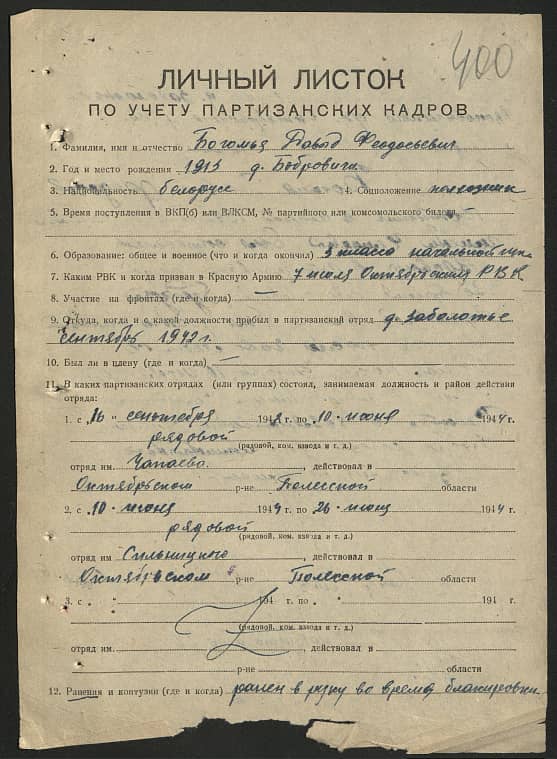 400
ЛИЧНЫЙ ЛИСТОК
ПО УЧЕТУ ПАРТИЗАНСКИХ КАДРОВ
1. Фамилия, имя и отчество Богомья Давыд Феодосьевич
2. Год и место рождения 1913 д. Бобровичи
3. Национальность белорусс 4. Соцположение колхозник
5. Время поступления в ВКП(б) или ВЛКСМ, № партийного или комсомольского билета
6. Образование: общее и военное (что и когда окончил) 3 класса начальной
7. Каким РВК и когда призван в Красную Армию 7 июля Октябрьским РВК
8. Участие на фронтах (где и когда) —
9. Откуда, когда и с какой должности прибыл в партизанский отряд д. Заболотье
Сентябрь 1942 г.
10. Был ли в плену (где и когда) —
11. В каких партизанских отрядах (или группах) состоял, занимаемая должность и район действия
отряда:
1. с „16 “ сентября 1942 г по „10 “ июня 1944 г.
рядовой
(рядовой, ком. взвода и т. д.)
отряд им. Чапаева , действовал в
Октябрьском р-не Полесской области
2. с „10 “ июня 1944 г по „26 “ июня 1944 г
рядовой
(рядовой, ком. взвода и т. д.)
отряд им Сильницкого , действовал в
Октябрьском р-не Полесской области
3. с „ “ 194 г. по „ “ 194 г.
(рядовой, ком. взвода и т. д.)
отряд им. , действовал в
р-не области
12. Ранения и контузии (где и когда) ранен в руку во время блакировки